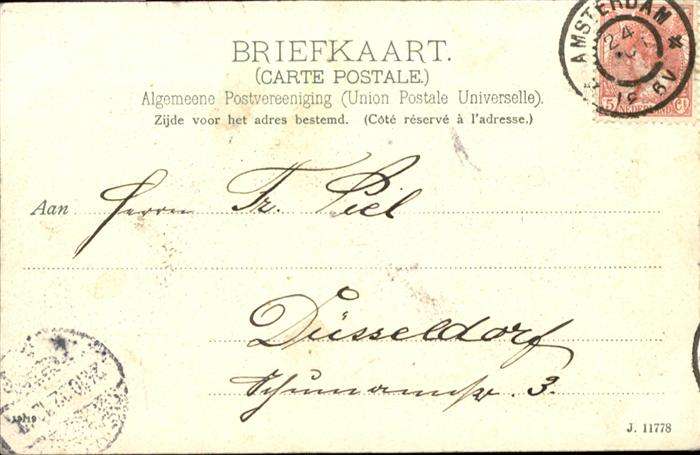 BRIEFKAART.
(CARTE POSTALE.)
Algemeene Postvereeniging (Union Postale Universelle).
Zijde voor het adres bestemd. (Côté réservé à l'adresse.)
AMSTERDAM
24
6V
5 CT
NEDERLAND
Aan Herrn Fr. Piel
Düsseldorf
Schumannstr. 3.
J. 11778